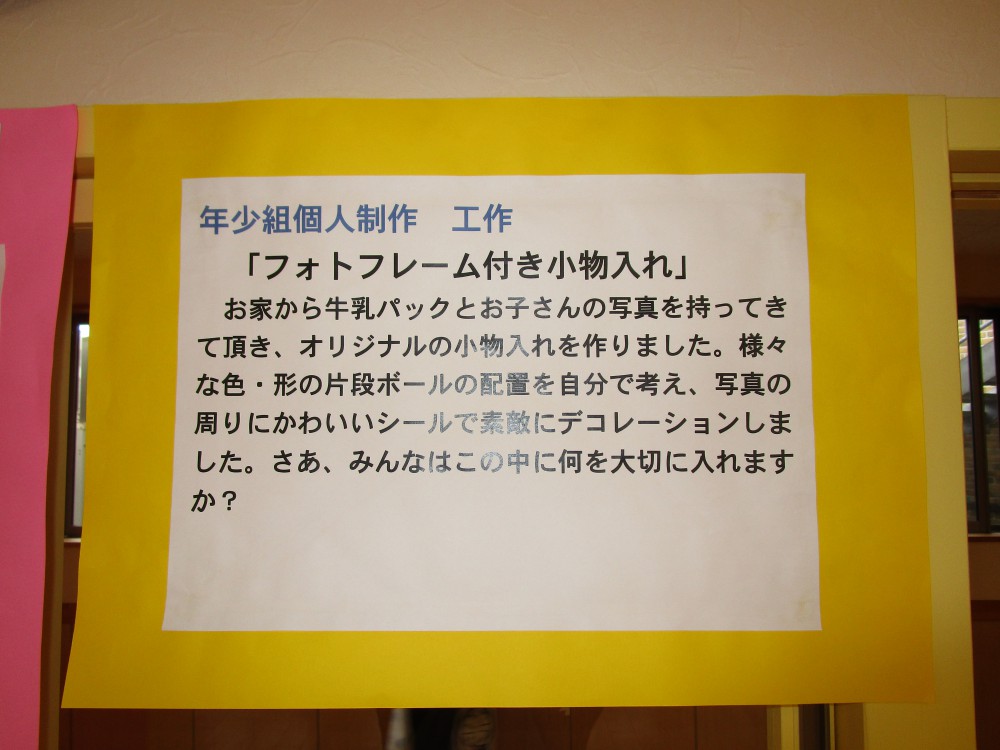 年少組個人制作　工作
「フォトフレーム付き小物入れ」
お家から牛乳パックとお子さんの写真を持ってき
て頂き、オリジナルの小物入れを作りました。様々
な色・形の片段ボールの配置を自分で考え、写真の
周りにかわいいシールで素敵にデコレーションしま
した。さあ、みんなはこの中に何を大切に入れます
か？